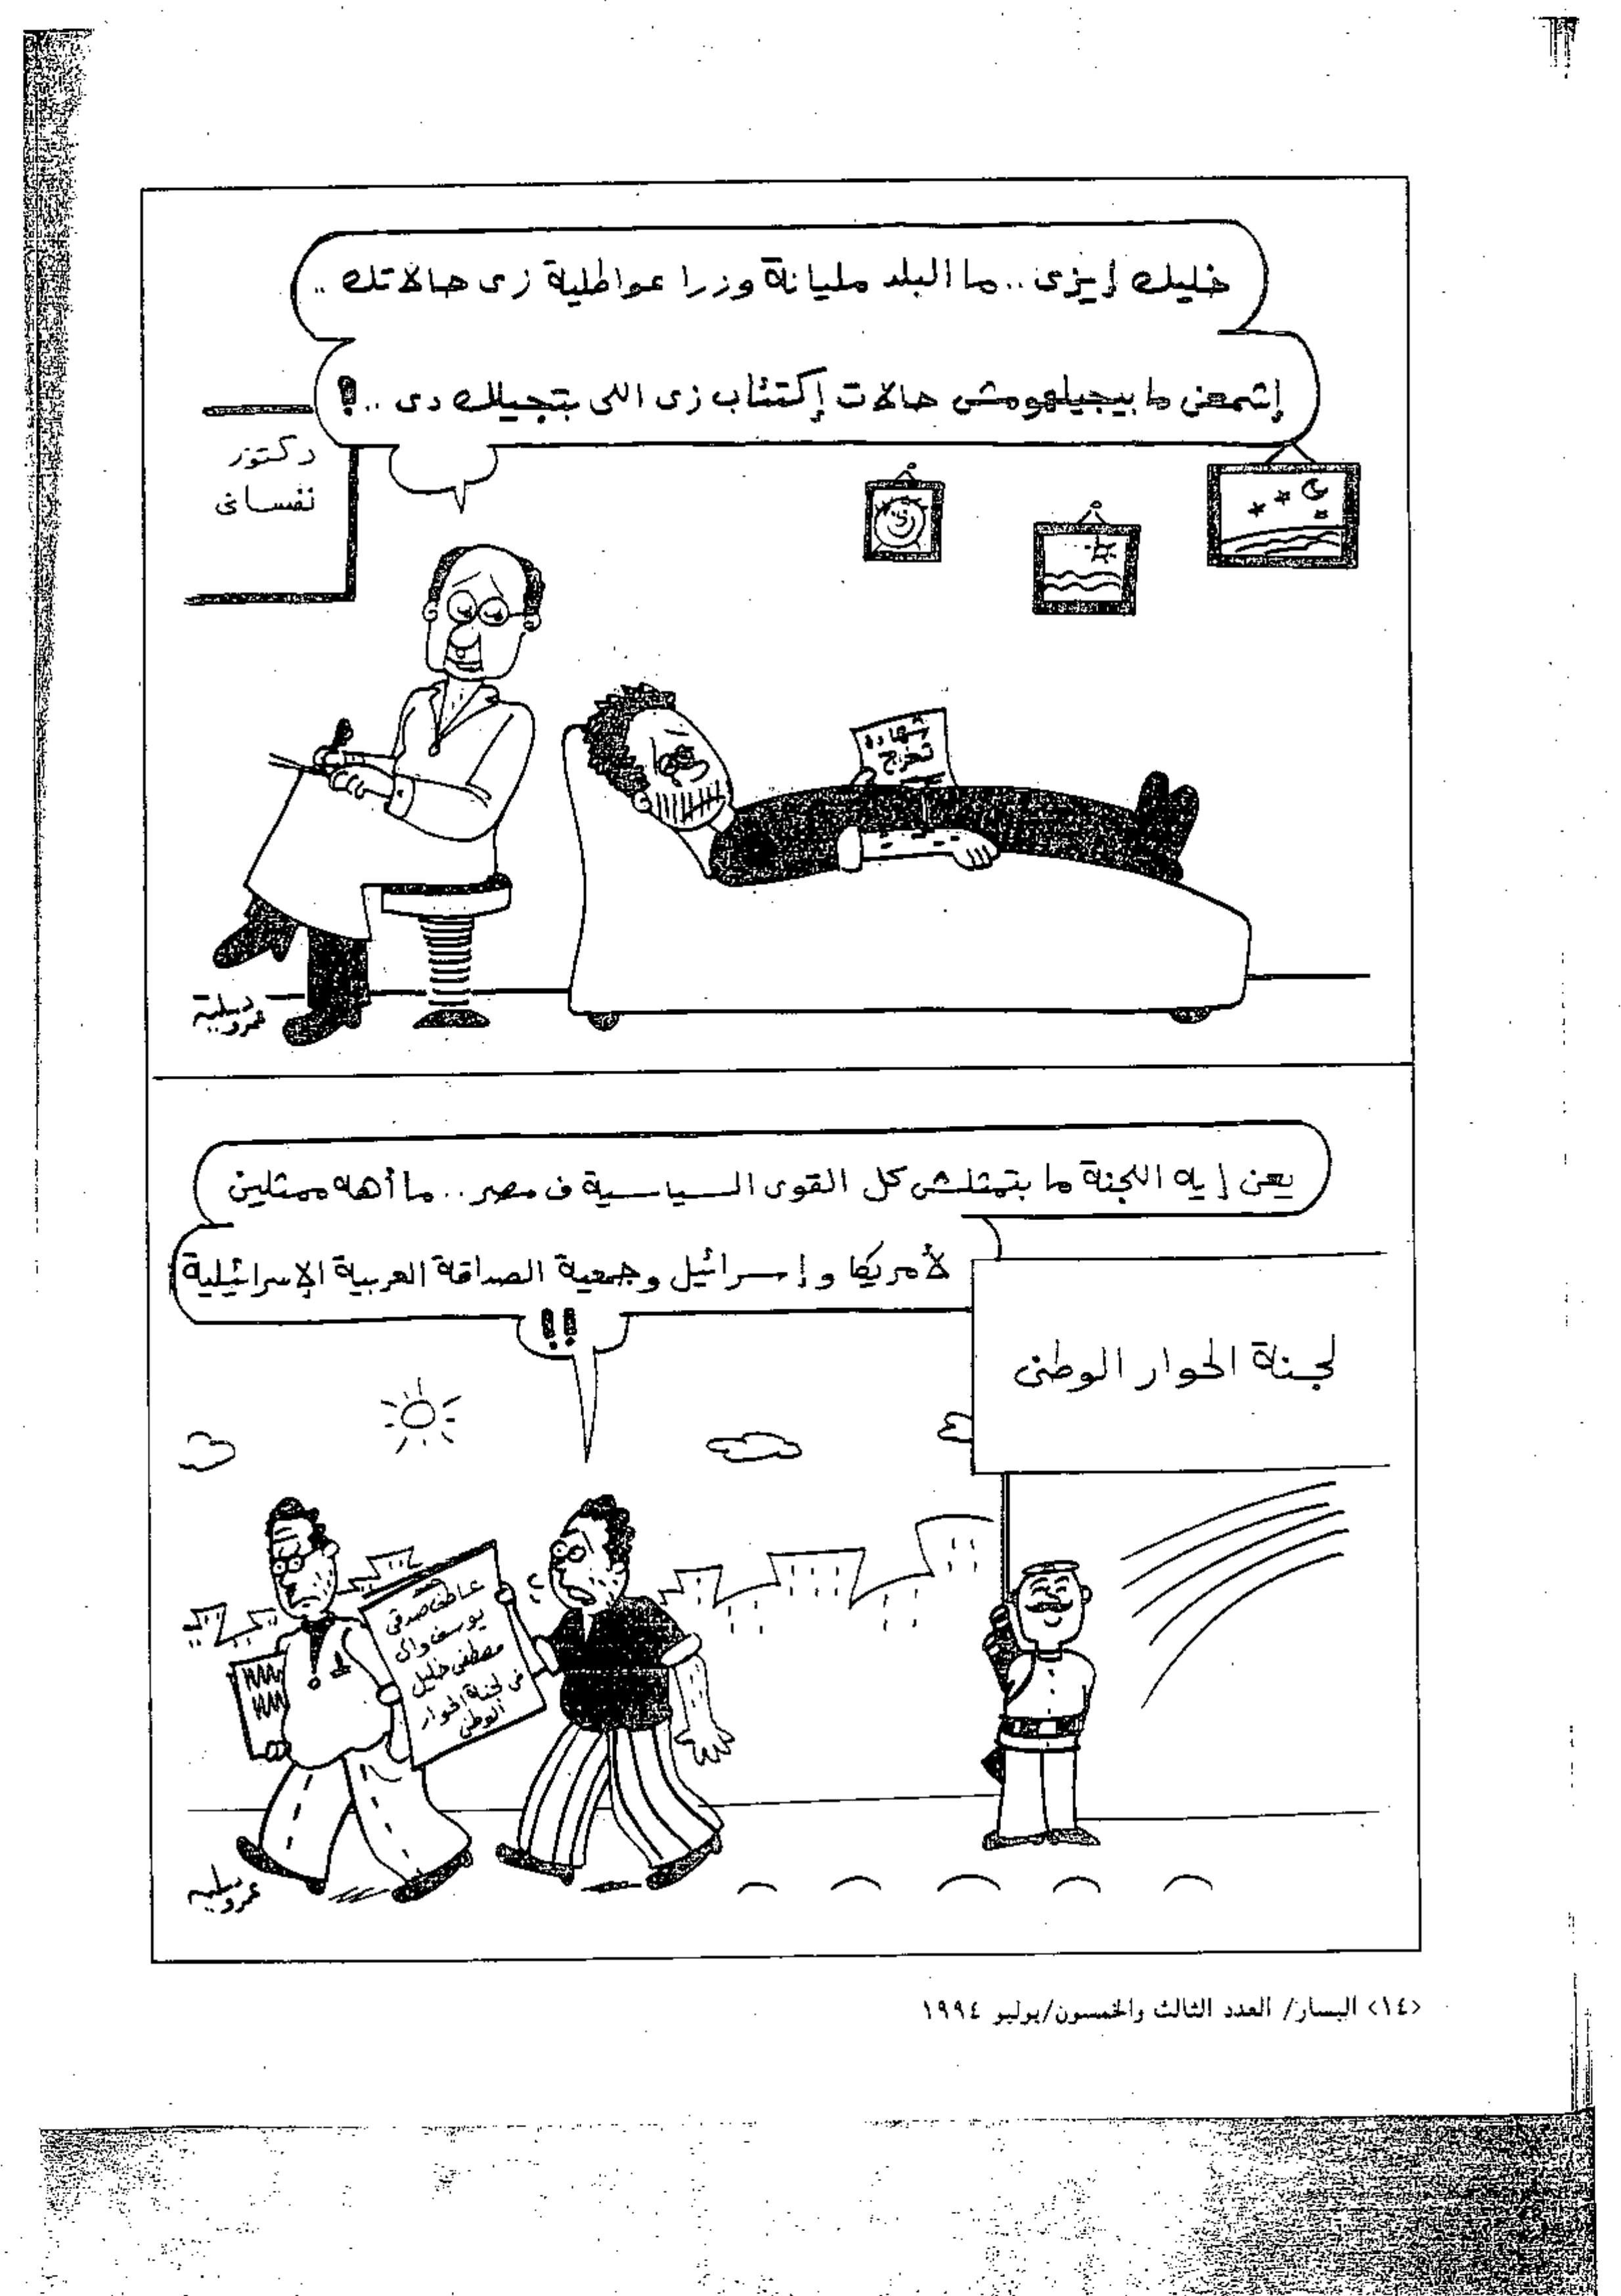 خليك إيزى.. ما البلد مليانة وزرا عواطلية زى حالاتك ..
إشمعنى ما بيجيلهومش حالات إكتئاب زى اللى بتجيلك دى ..!
دكتور
نفسانى
شهادة
تخرج
عمرو
يعنى إيه اللجنة ما بتمثلش كل القوى السياسية فى مصر.. ما أهه ممثلين
لأمريكا وإسرائيل وجمعية الصداقة العربية الإسرائيلية
!!
لجنة الحوار الوطنى
عاطف صدقى
يوسف والى
مصطفى خليل
فى لجنة الحوار
الوطنى
عمرو
<١٤> اليسار/ العدد الثالث والخمسون/يوليو ١٩٩٤